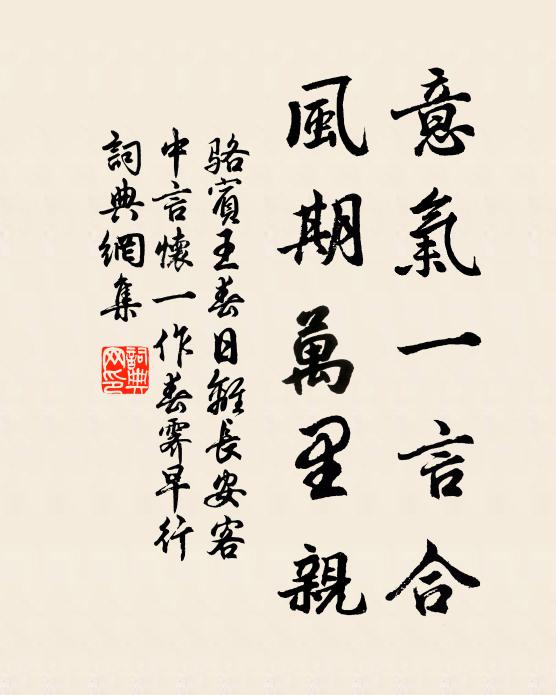 意氣一言合
風期萬里親
骆賓王春日離長安客
中言懷一作春霽早行
詞典網集
詞典网印